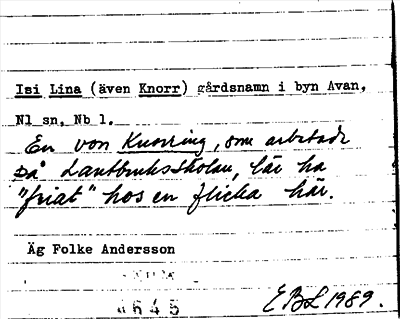 Isi Lina (även Knorr) gårdsnamn i byn Avan,
Nl sn, Nb l.
En von Knorring, som arbetade
på Lantbruksskolan, lär ha
"friat" hos en flicka här.
Äg Folke Andersson
4645
EBL 1989.